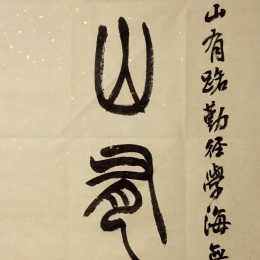 山有路勤径學海無
山有